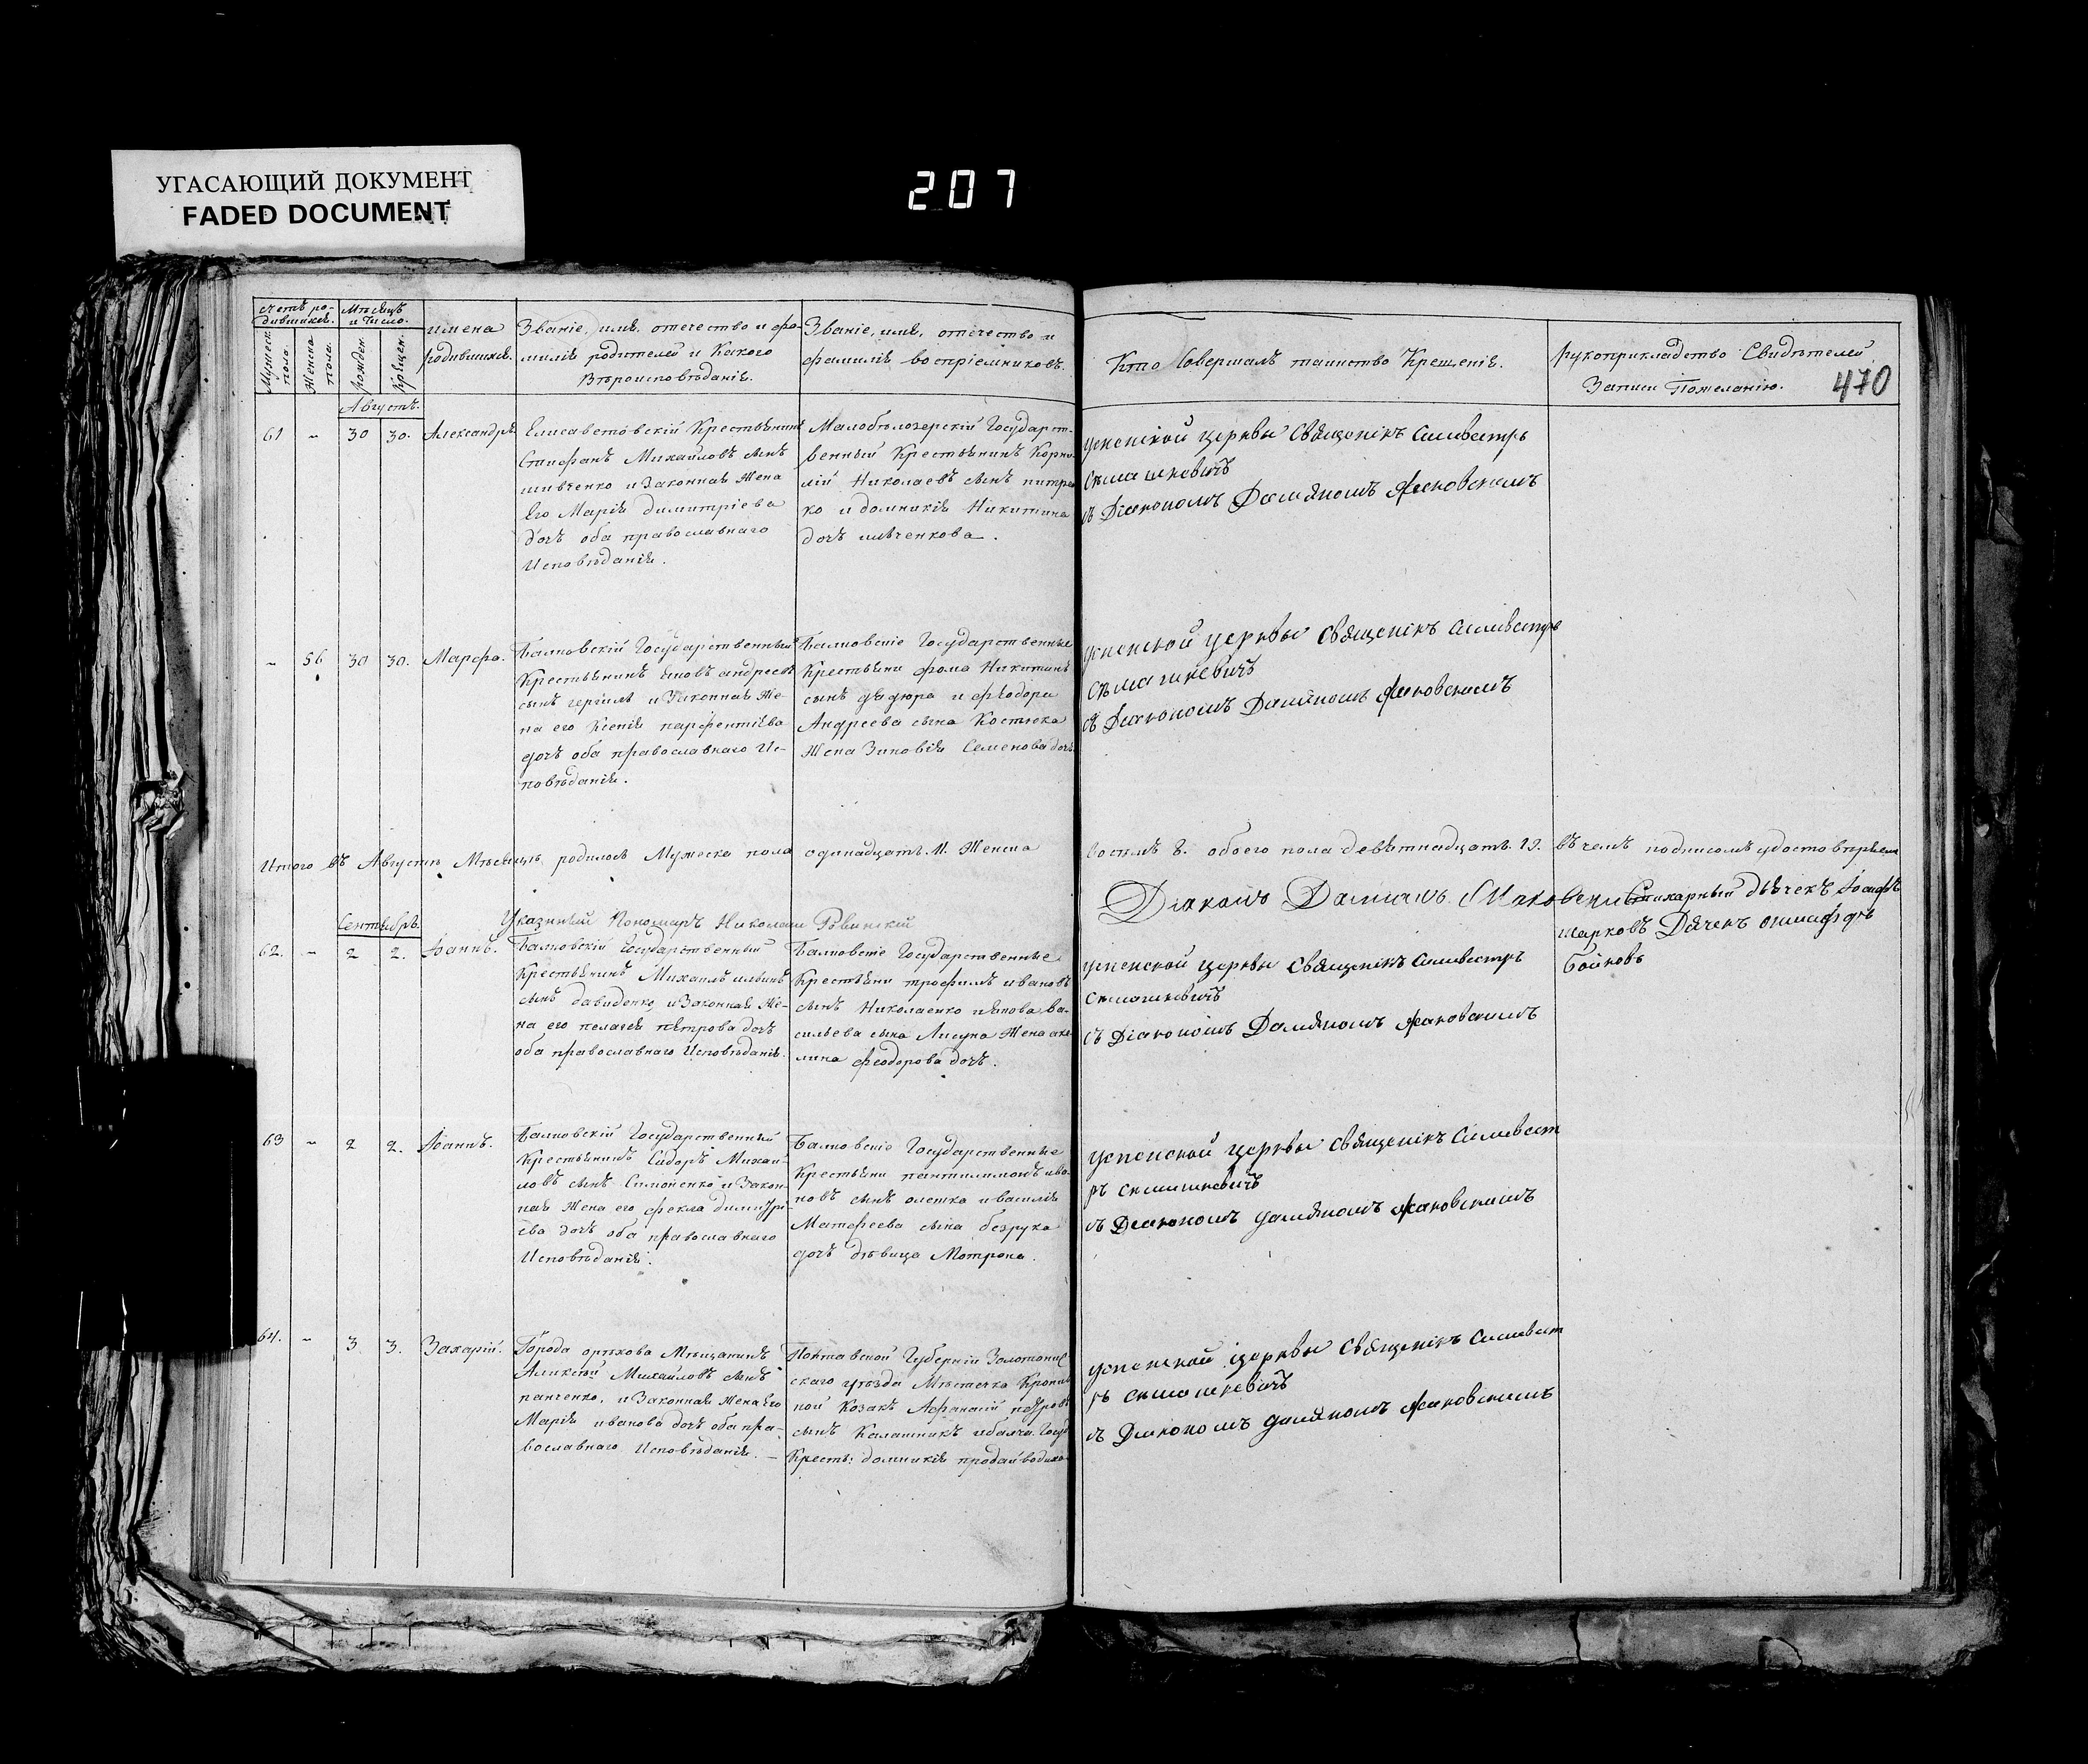 УГАСАЮЩИЙ ДОКУМЕНТ
FADED DOCUMENT
207
счетъ ро-
дившихся.
Мѣсяцъ
и число.
Мужеск.
пола.
Женска
пола.
рожден.
Крещен.
имена
родившихся.
Званіе, имя, отечество и фа-
милія родителей и Какого
Вѣроисповѣданія.
Званіе, имя, отечество и
фамилія воспріемниковъ.
Кто Совершалъ таинство Крещенія.
рукоприкладство Свидѣтелей
Записи Пожеланію.
470
Августъ.
61 ~ 30 30. Александръ
Елисаветовскій Крестьянинъ
Стефанъ Михайловъ сынъ
шивченко и Законная Жена
Его Марія димитріева
дочъ оба православнаго
Исповѣданія.
Малобѣлозерскій Государст-
венный Крестьянинъ Корни-
лій Николаевъ сынъ
ко и домникія Никитина
дочъ
успенской церквы Священикъ Силвестръ
Сѣмашкевичъ
съ Діякономъ Даміяномъ
~ 56 30 30. Марфа.
Балковскій Государственный
Крестьянинъ андреевъ
сынъ и Законная Же-
на его Ксенія парфентіева
дочъ оба православнаго Ис-
повѣданія.
Балковскіе Государственные
Крестьяни фома Никитинъ
сынъ и феодора
Андреева сына Костюка
Жена Зиновія Семенова дочъ
успенской церквы Священикъ Силвестръ
Сѣмашкевичъ
съ Діякономъ Даміяномъ
Итого въ Августѣ Мѣсяцѣ родилось Мужеска пола одинадцать. 11. Женска
восемъ 8. обоего пола девятнадцать 19. въ чемъ подписомъ удостовѣряем
Діаконъ Даміанъ
Стихарный дьячекъ Іосифъ
Марковъ Дячекъ
Бойковъ
Указный Пономаръ Николай Ровинскій
Сентябрь.
62. ~ 2 2. Іоаннъ.
Балковскій Государственный
Крестьянинъ Михаилъ ильинъ
сынъ давиденко, и Законная Же-
на его пелагея петрова дочъ
оба православнаго Исповѣданія.
Балковскіе Государственные
Крестьяни трофимъ ивановъ
сынъ Николаенко Ва-
сильева сына Лисуна Жена аке-
лина феодорова дочъ.
успенской церквы Священикъ Силвестръ
Сѣмашкевичъ
съ Діякономъ Даміяномъ
63 ~ 2 2. Іоаннъ.
Балковскій Государственный
Крестьянинъ Сидоръ Михаи-
ловъ сынъ Симоненко и Закон-
ная Жена его фекла димитрі-
ева дочъ оба православнаго
Исповѣданія.
Балковскіе Государственные
Крестьяни пантилимонъ ива-
новъ сынъ и василія
Матфеева сына безрука
дочъ дѣвица Мотрона.
успенской церквы Священикъ Силвест
ръ Сѣмашкевичъ
съ Діякономъ даміяномъ
64. ~ 3 3. Захарій.
Города орѣхова Мѣщанинъ
Алексѣй Михайловъ сынъ
панченко, и Законная Жена Его
Марія иванова дочъ оба пра-
вославнаго Исповѣданія. —
Полтавской Губерніи Золотонис
скаго уѣзда Мѣстечка Кропив
ной Козакъ Афанасій петровъ
сынъ Калашникъ Госу
Кресть: домникія
успенской церквы Священикъ Силвест
ръ Сѣмашкевичъ
съ Діякономъ даміяномъ